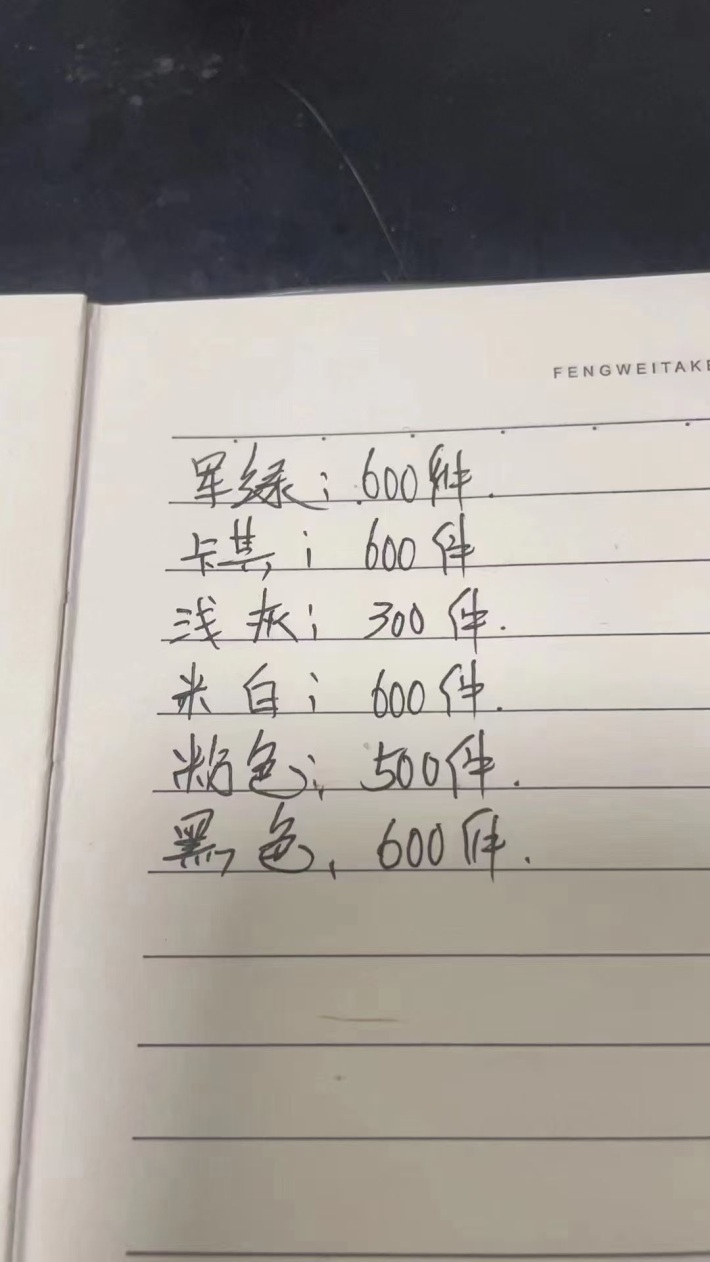 FENGWEITAKE
军绿：600件.
卡其：600件
浅灰：300件.
米白：600件.
粉色：500件.
黑色，600件.